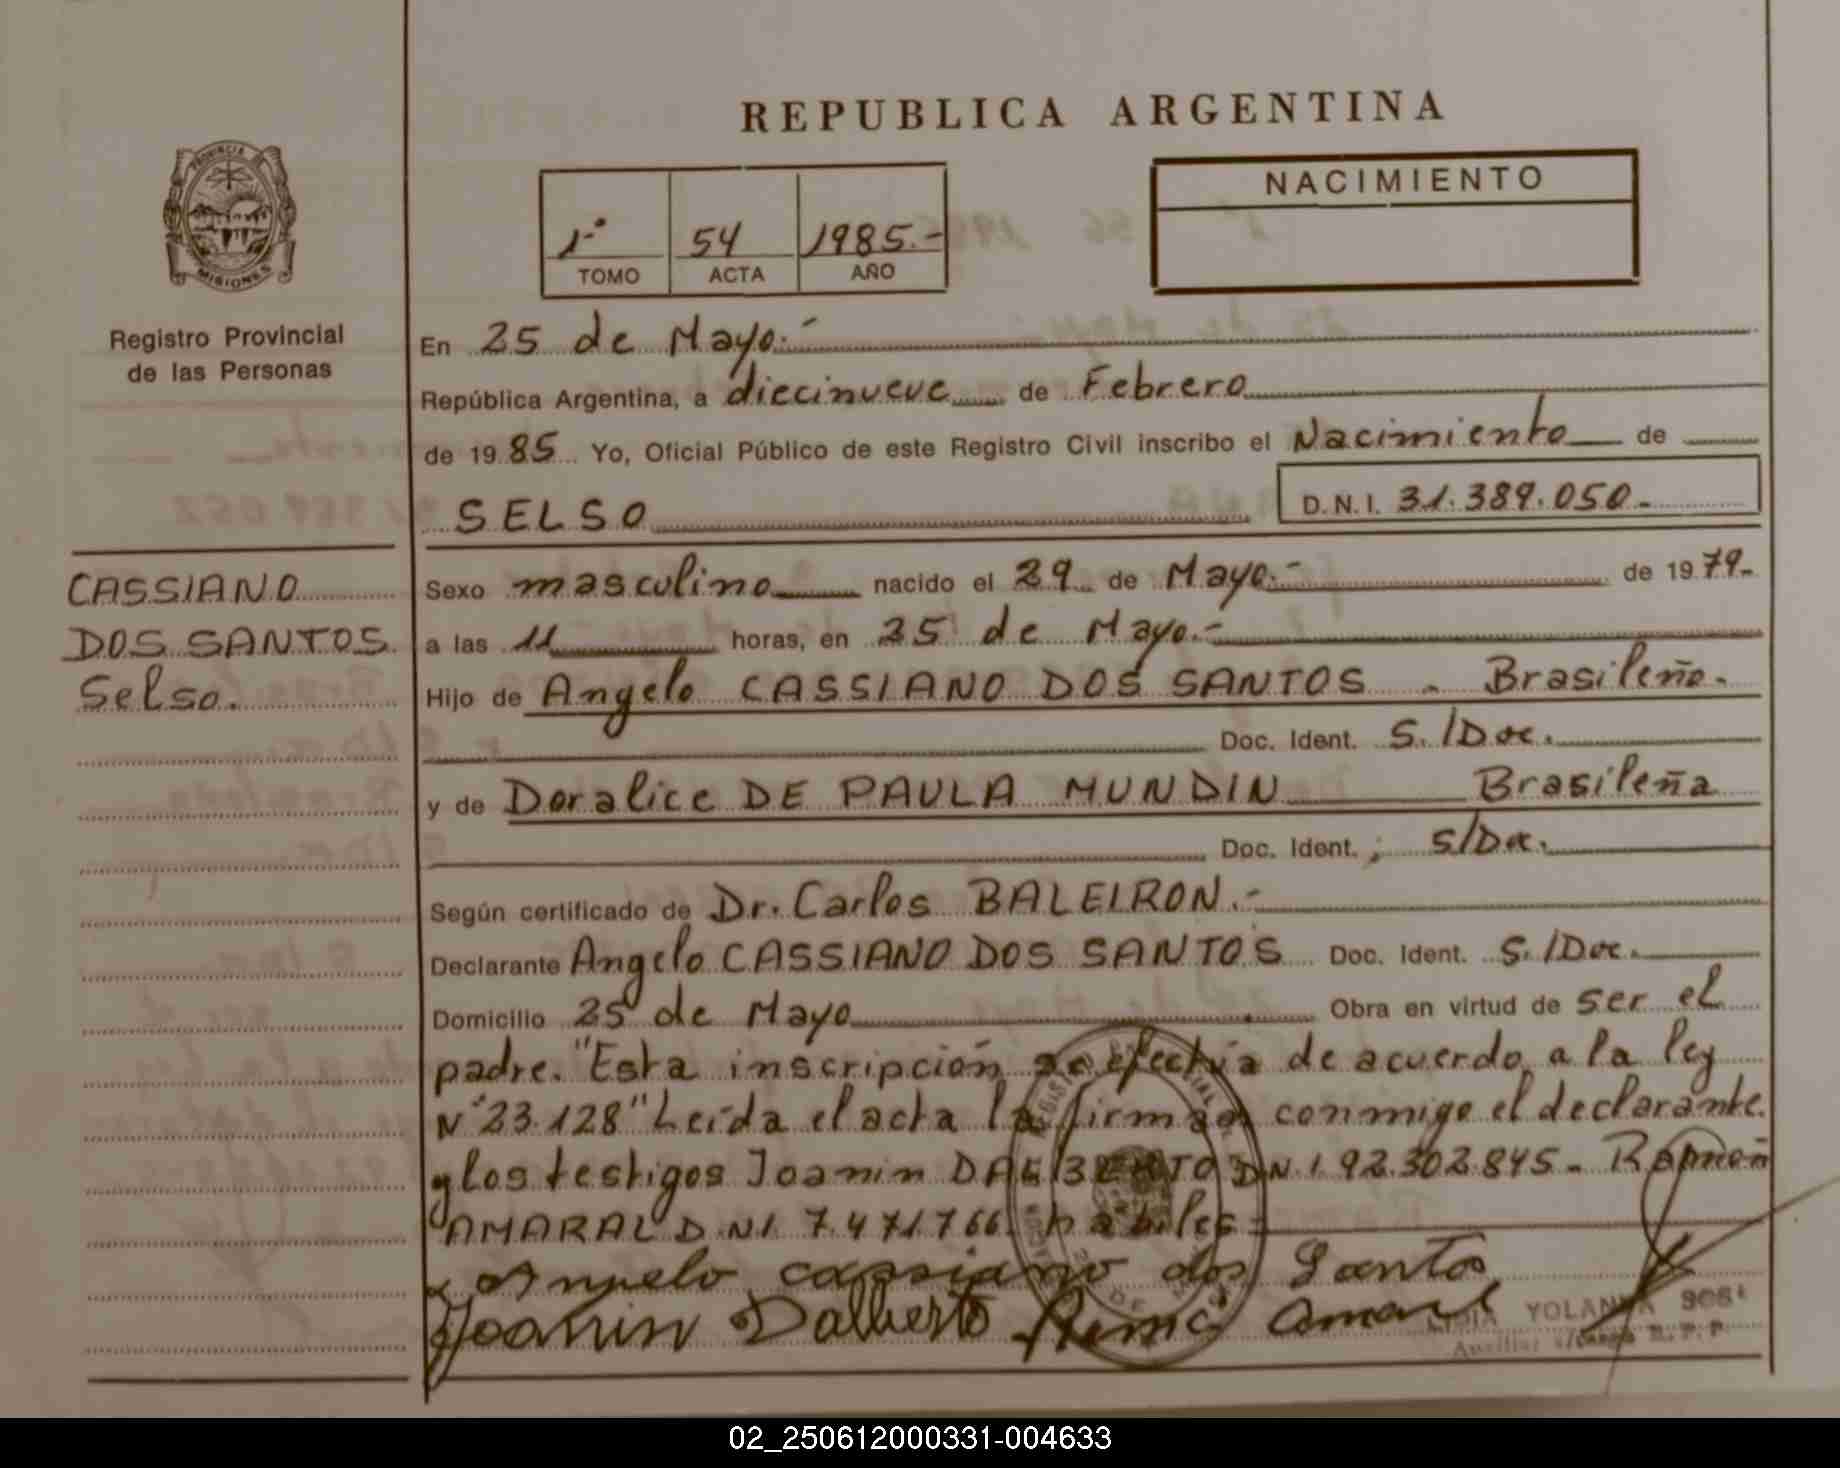 REPUBLICA ARGENTINA
PROVINCIA DE
MISIONES
Registro Provincial
de las Personas
1º 54 1985.-
TOMO ACTA AÑO
NACIMIENTO
En 25 de Mayo.-
República Argentina, a diecinueve de Febrero
de 1985 Yo, Oficial Público de este Registro Civil inscribo el Nacimiento de
SELSO
D.N.I. 31.389.050.-
CASSIANO
DOS SANTOS
Selso.
Sexo masculino nacido el 29 de Mayo.- de 1979.-
a las 11 horas, en 25 de Mayo.-
Hijo de Angelo CASSIANO DOS SANTOS - Brasileño.
Doc. Ident. S./Doc.
y de Doralice DE PAULA MUNDIN Brasileña
Doc. Ident. ; S/Doc.
Según certificado de Dr. Carlos BALEIRON.-
Declarante Angelo CASSIANO DOS SANTOS Doc. Ident. S./Doc.
Domicilio 25 de Mayo Obra en virtud de ser el
padre. "Esta inscripción se efectúa de acuerdo a la ley
Nº 23.128" Leída el acta la firman conmigo el declarante
y los testigos Joanin DALBERTO DN.I 92.302.845- Ramón
AMARAL D.N.I. 7.471.766. hábiles
Angelo cassiano dos Santos
Joanin Dalberto Amaral
YOLANDA
Auxiliar
02_250612000331-004633